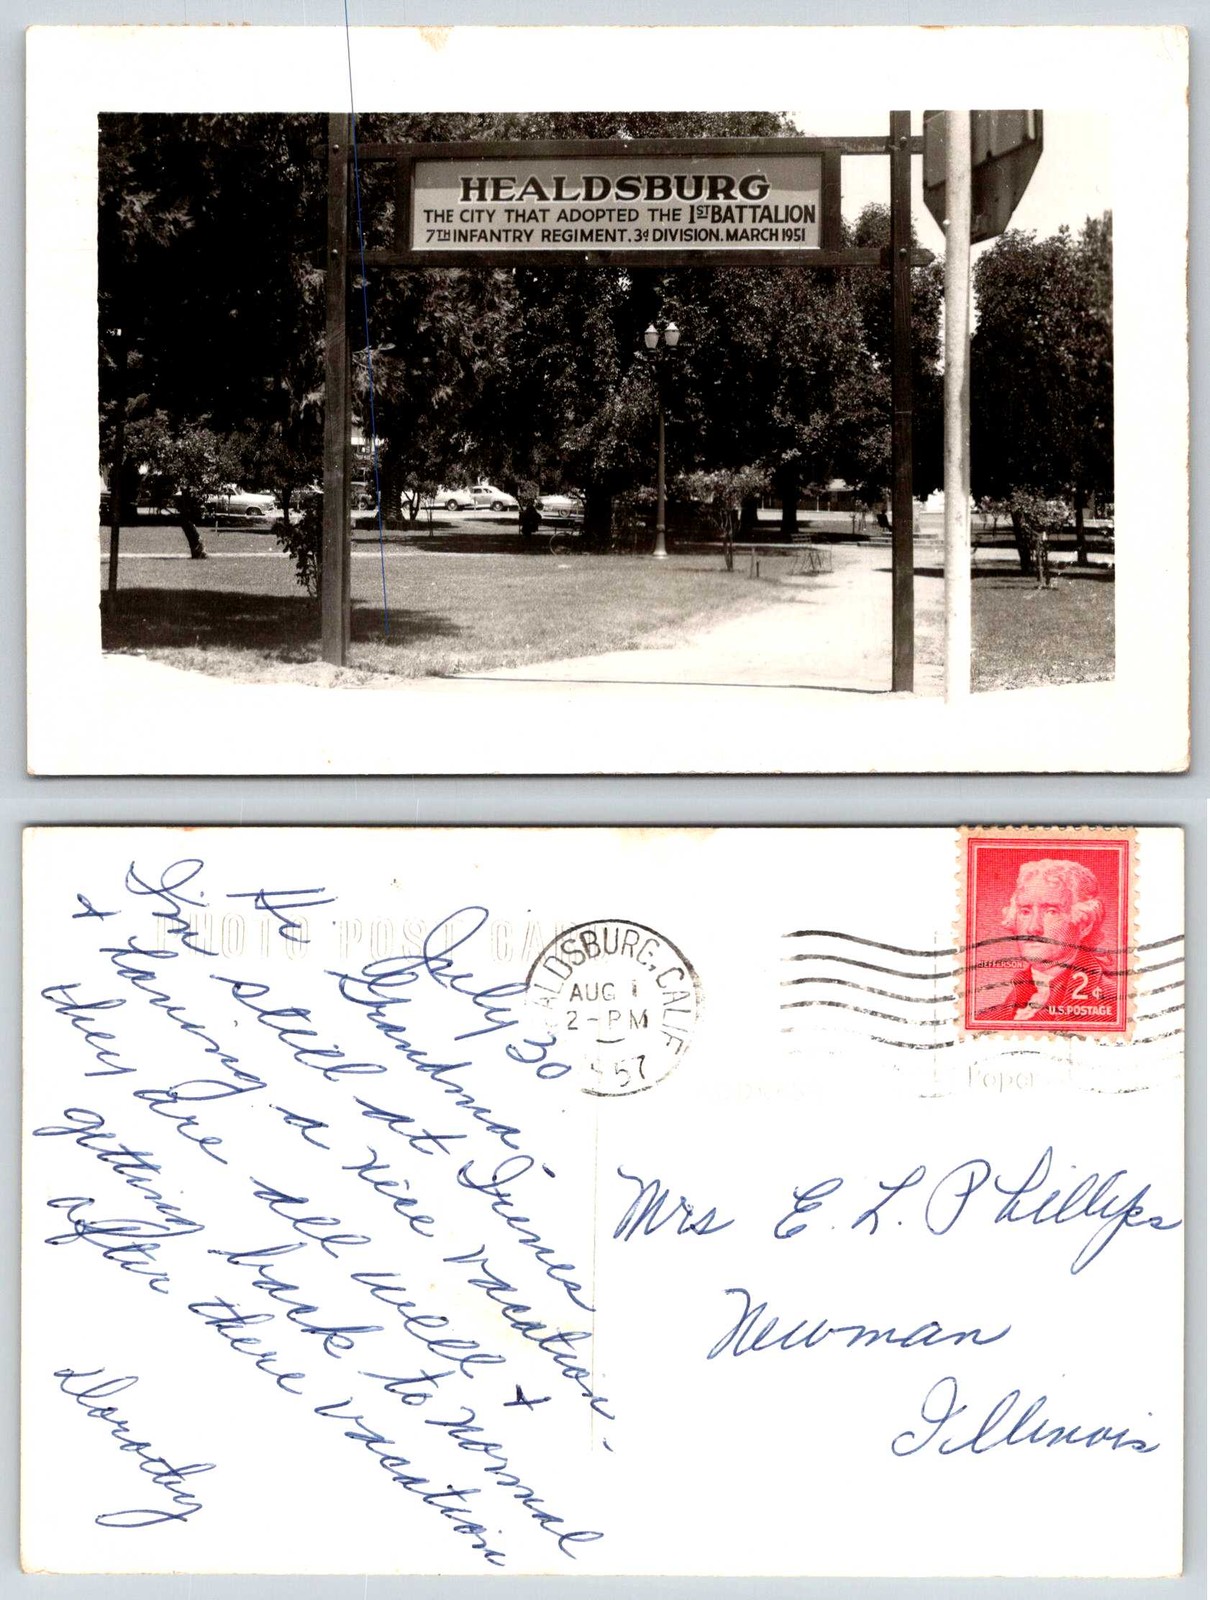 HEALDSBURG
THE CITY THAT ADOPTED THE 1ST BATTALION
7TH INFANTRY REGIMENT. 3d DIVISION. MARCH 1951
PHOTO POST CARD
July 30
Hi Grandma -
I'm still at Irenes
+ having a nice vacation -
they are all well +
getting back to normal
after there vacation
Dorothy
HEALDSBURG, CALIF
AUG 1
2 - PM
1957
JEFFERSON
2¢
U.S. POSTAGE
Mrs E. L. Phillips
Newman
Illinois